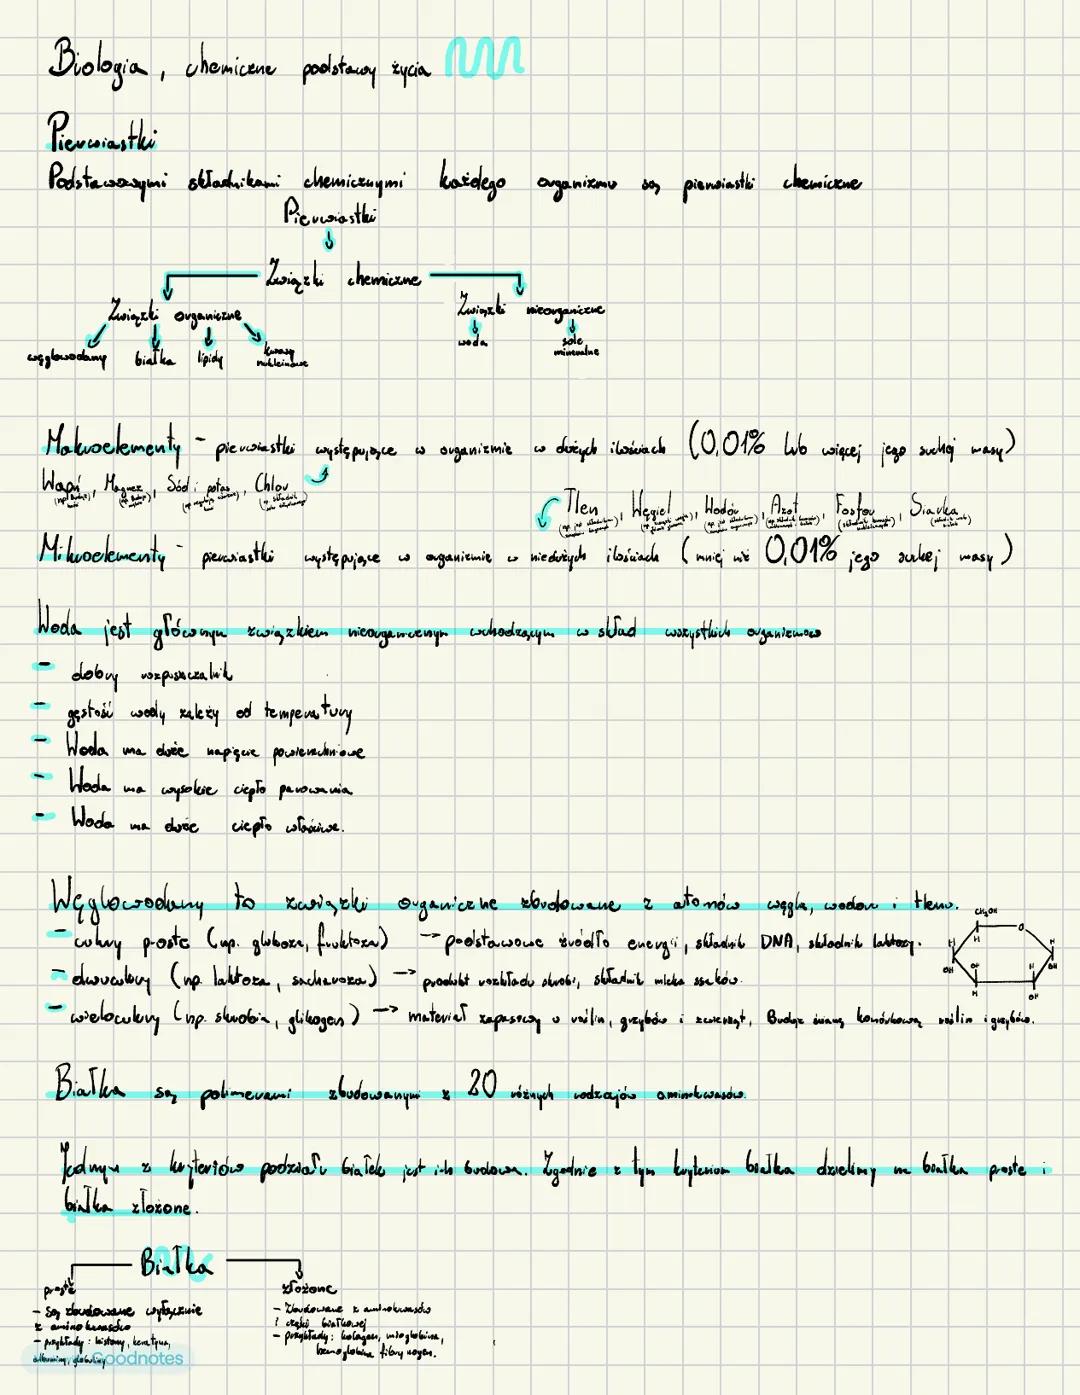 Biologia, chemiczne podstawy życia
Pierwiastki
Podstawowymi składnikami chemicznymi każdego organizmu są pierwiastki chemiczne
Pierwiastki
Związki chemiczne
Związki organiczne
Związki nieorganiczne
węglowodany białka lipidy kwasy nukleinowe
woda sole mineralne
Makroelementy - pierwiastki występujące w organizmie w dużych ilościach (0,01% lub więcej jego suchej masy)
Wapń, Magnez, Sód i potas, Chlor
Tlen, Węgiel, Wodór, Azot, Fosfor, Siarka
Mikroelementy - pierwiastki występujące w organizmie w niedużych ilościach (mniej niż 0,01% jego suchej masy)
Woda jest głównym związkiem nieorganicznym wchodzącym w skład wszystkich organizmów
- dobry rozpuszczalnik
- gęstość wody zależy od temperatury
- Woda ma duże napięcie powierzchniowe
- Woda ma wysokie ciepło parowania
- Woda ma duże ciepło właściwe.
Węglowodany to związki organiczne zbudowane z atomów węgla, wodoru i tlenu.
- cukry proste (np. glukoza, fruktoza) → podstawowe źródło energii, składnik DNA, składnik laktozy.
- dwucukry (np. laktoza, sacharoza) → produkt rozkładu skrobi, składnik mleka ssaków.
- wielocukry (np. skrobia, glikogen) → materiał zapasowy u roślin, grzybów i zwierząt, Buduje ścianę komórkową roślin i grzybów.
CH₂OH
O
H H H
OH OH H OH
H OH
Białka są polimerami zbudowanymi z 20 różnych rodzajów aminokwasów.
Jednym z kryteriów podziału białek jest ich budowa. Zgodnie z tym kryterium białka dzielimy na białka proste i
białka złożone.
Białka
proste
- Są zbudowane wyłącznie
z aminokwasów
- przykłady: histony, keratyna,
albuminy, globuliny
złożone
- Zbudowane z aminokwasów
i części białkowej
- przykłady: kolagen, mioglobina,
hemoglobina fibrynogen.
Goodnotes